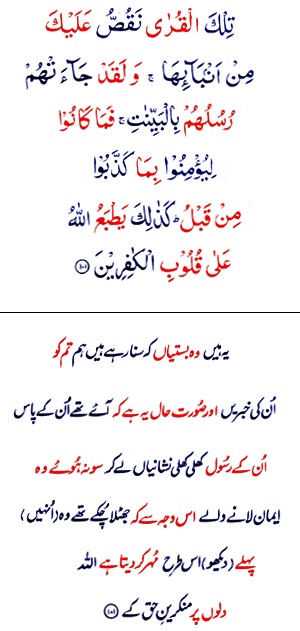 تِلْكَ الْقُرٰى نَقُصُّ عَلَيْكَ
مِنْ اَنْۢبَآئِهَا ۚ وَ لَقَدْ جَآءَتْهُمْ
رُسُلُهُمْ بِالْبَيِّنٰتِ ۚ فَمَا كَانُوْا
لِيُؤْمِنُوْا بِمَا كَذَّبُوْا
مِنْ قَبْلُ ؕ كَذٰلِكَ يَطْبَعُ اللّٰهُ
عَلٰى قُلُوْبِ الْكٰفِرِيْنَ ﴿۱۰۱﴾
یہ ہیں وہ بستیاں کہ سنا رہے ہیں ہم تم کو
اُن کی خبریں اور صُورت حال یہ ہے کہ آئے تھے اُن کے پاس
اُن کے رسُول کھلی کھلی نشانیاں لے کر سو نہ ہُوئے وہ
ایمان لانے والے اس وجہ سے کہ جھٹلا چُکے تھے وہ (اُنہیں)
پہلے (دیکھو) اس طرح مُہر کر دیتا ہے اللہ
دلوں پر منکرینِ حق کے ﴿۱۰۱﴾